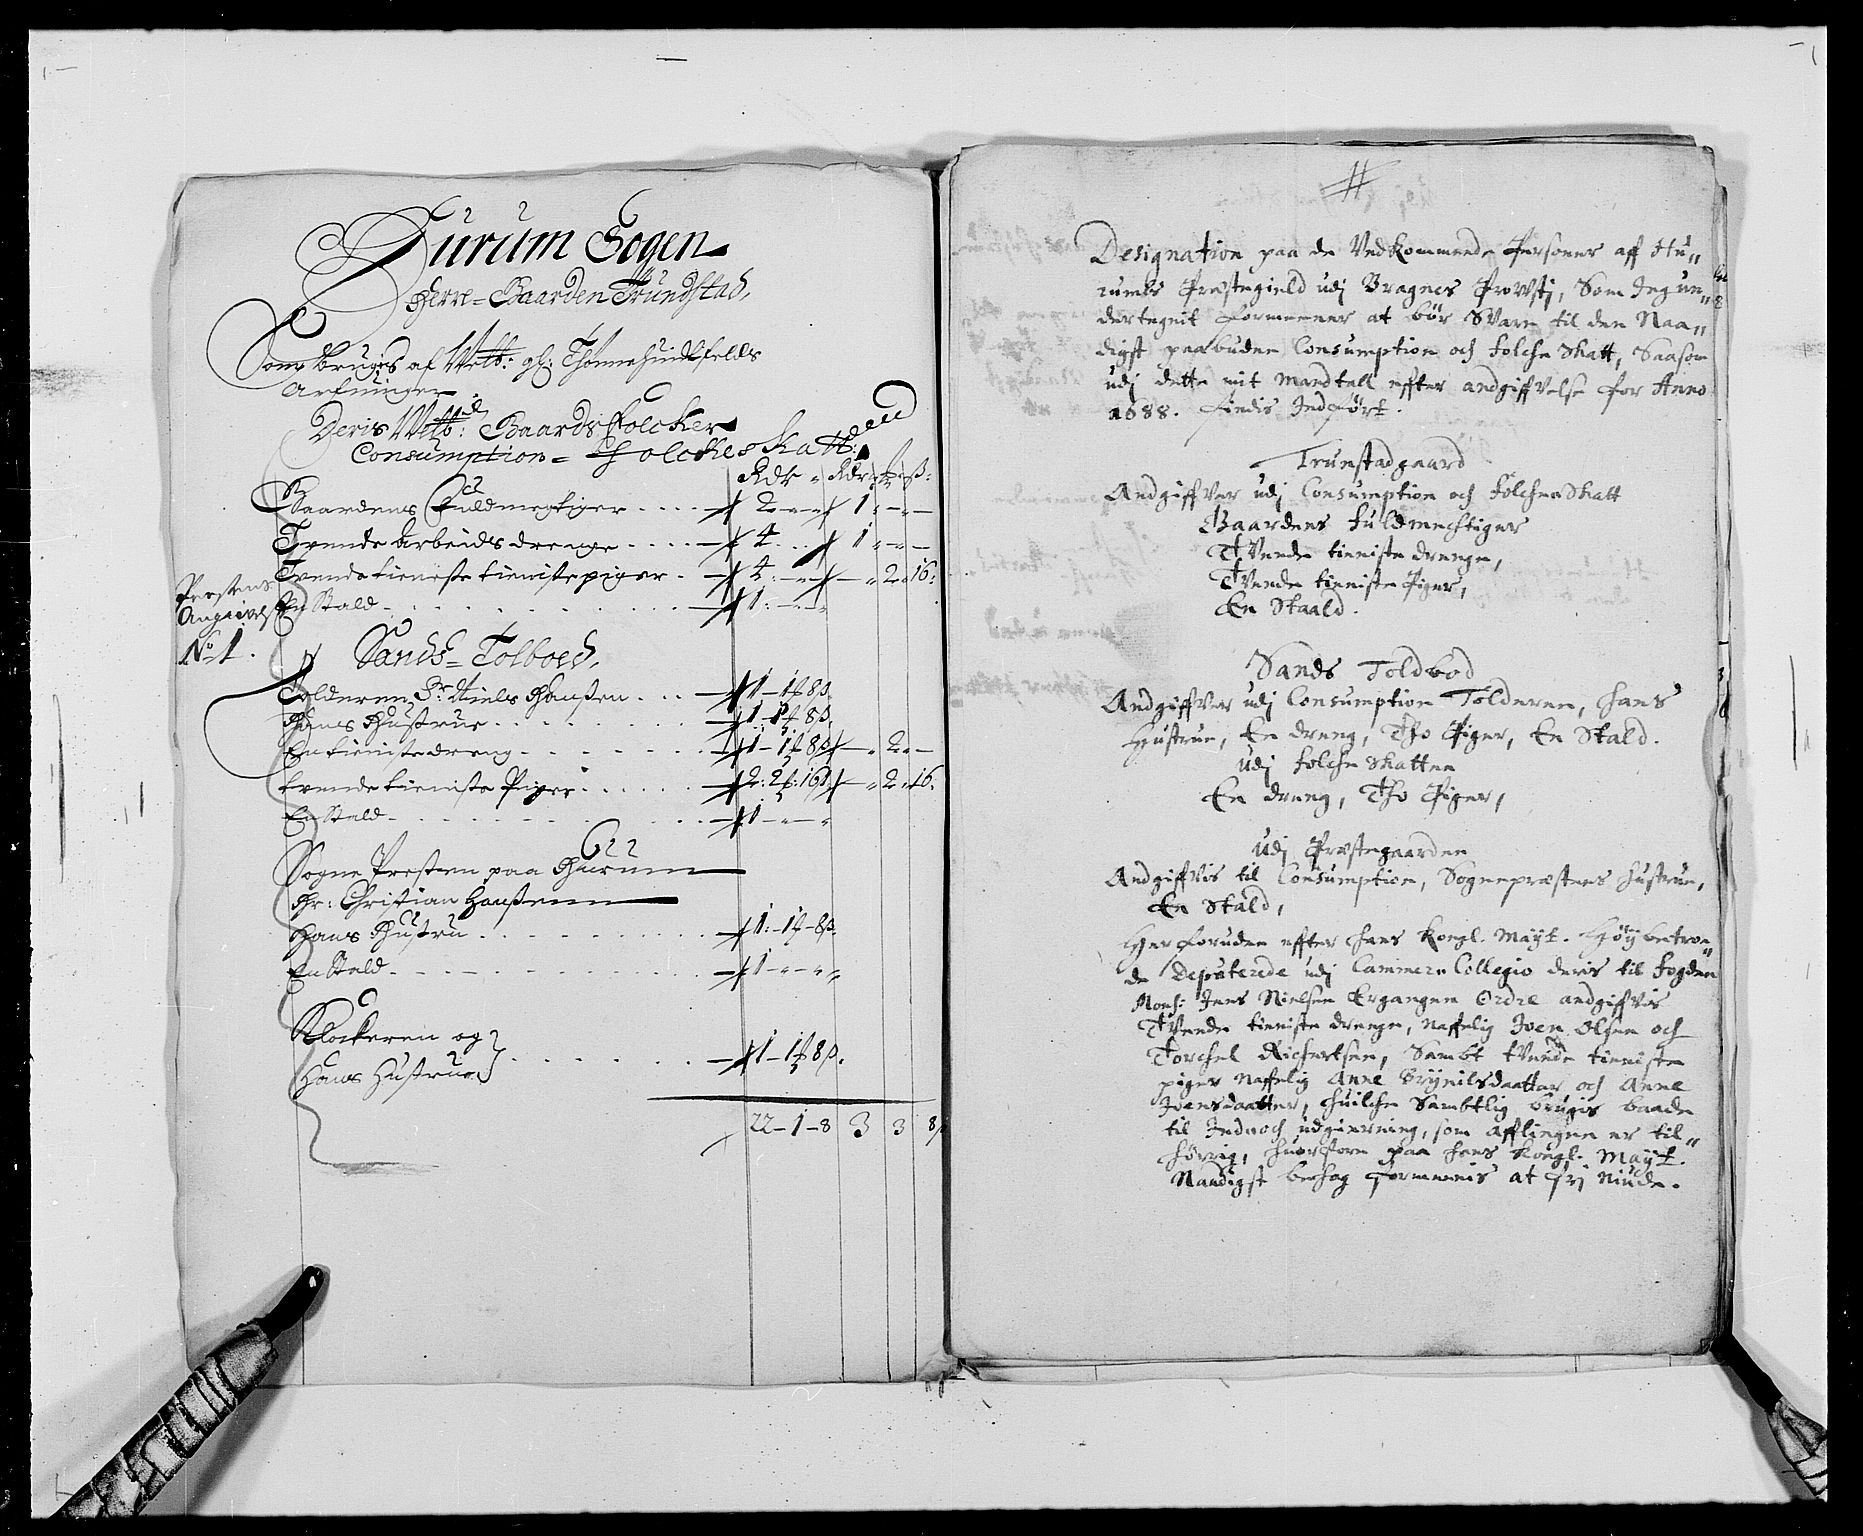 Hurum Sogen
Herre-Gaarden Trundstad,
Som bruges af Welb: Sl: Thønne Huidtfeldts
Arfuinger
Deris Welb: Gaards Folcker
Consumption = Folckeskatt:
Rdr - Rdr - ß:
Gaardens Fuldmegtiger .... 2 - - 1 - - -
Tvende Arbeids drenge .... 4 .. 1 - - -
Tvende tieneste tienistepiger . 4 : - - - 2 - 16:
Prestens
Angivels
No 1.
En Stald - 1 : - - -
Sands = Tolboed,
Tolderen Sr. Niels Hanßen ... 1 - 1 - 8 ß.
Hans Hustrue ........ 1 - 1 - 8 ß.
En tieniste dreng - 1 - 1 - 8 ß - - 2 - -
tvende tieniste Piger ...... 2: 2: 16 ß - - 2 - 16.
En Stald - 1 - - -
Sogne Presten paa Hurum
Hr: Christian Hanßen
Hans Hustru ........ 1: - 1 - 8 ß.
En Stald - 1 - - -
Klockeren og
Hans Hustrue ...... 1 - 1 - 8 ß.
22 - 1 - 8 3 3 8 ß
Designation paa de Vedkommende Personer aff Hu„
rumbs Præstegield udj Bragnes Prowstj, Som Jeg un„
dertegnit formeener at bør Svare til den Naa„
digst paabudne Consumption och Folche Skatt, Saasom
udj dette mit Mandtall effter andgiffvelse for Anno
1688. findis Indført.
Trunstadgaard
Andgiffver udj Consumption och Folche Skatt
Gaardens Fuldmechtiger
Tvende tieniste drenge,
Tvende tieniste Piger,
En Staald.
Sands Toldbod
Andgiffver udj Consumption Tolderen, hans
Hustrue, En dreng, Tho Piger, En Stald.
udj Folche Skatten
En dreng, Tho Piger,
udj Præstegaarden
Andgiffvis til Consumption, Sognepræstens hustrue,
En Stald,
Her foruden effter hans Kongl. Mayt. Høybetroe„
de Deputerede udj Cammer Collegio deris til Fogden
Mons: Jens Nielsen Ergangen Ordre andgiffvis
Tvende tieniste drenge, Naffelig Joen Olsen och
Torchel Richertsen, Sambt tvende tieniste
piger Naffelig Anne Brynilsdaatter och Anne
Joensdaatter, huilche Sambtlig brugis baade
til Ind och udgierning, som afflingen er til„
hørrig, huorfore paa hans Kongl. Mayt.
Naadigst behag formeenis at frj Niude.